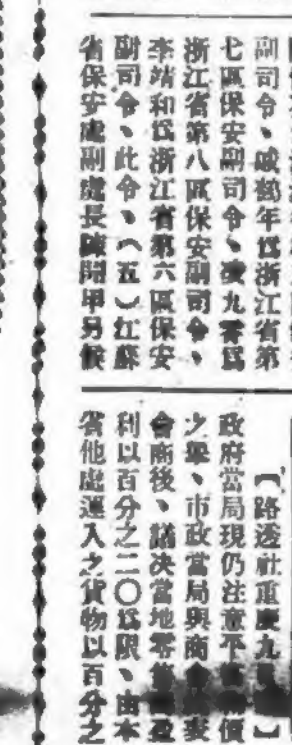 副司令、戚鶴年爲浙江省第
七區保安副司令、九零爲
浙江省第八區保安副司令、
李靖和爲浙江省第六區保安
副司令、此令、（五）江蘇
省保安處副處長陳開甲另候
【路透社重慶九】
政府當局現仍注意平價
之舉、市政當局與商會
會商後、議決當地零售盈
利以百分之二〇爲限、由本
省他處運入之貨物以百分之